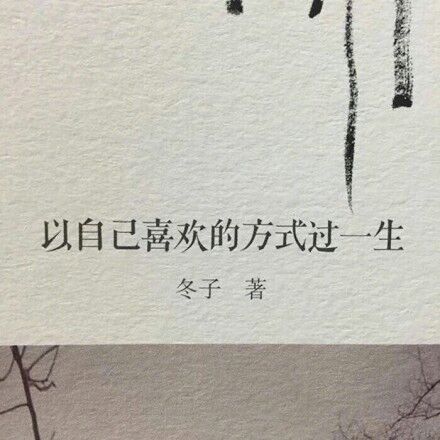 以自己喜欢的方式过一生
冬子 著